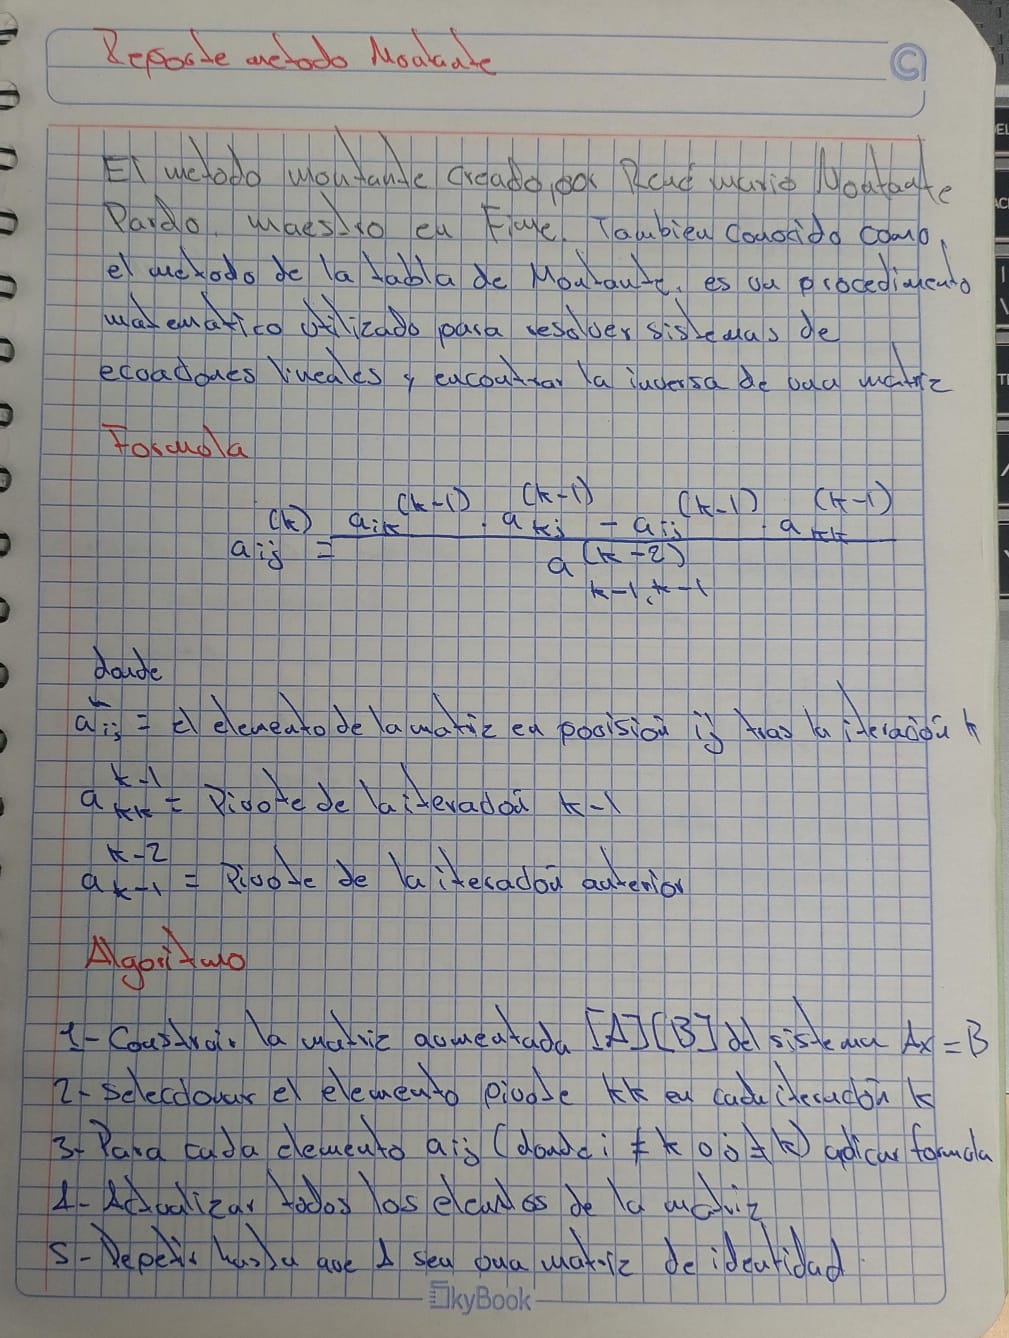 Reporte metodo Montante
C
El metodo montante creado por René mario Montante
Pardo, maestro en Fime. Tambien conocido como
el metodo de la tabla de Montante, es un procedimiento
matematico utilizado para resolver sistemas de
ecuaciones lineales y encontrar la inversa de una matriz
Formula
a_ij^(k) = (a_ik^(k-1) · a_kj^(k-1) - a_ij^(k-1) · a_kk^(k-1)) / a_k-1,k-1^(k-2)
donde
a_ij^k = el elemento de la matriz en posision ij tras la iteración k
a_kk^k-1 = Pivote de la iteración k-1
a_k-1^k-2 = Pivote de la iteración anterior
Algoritmo
1- Construir la matriz aumentada [A][B] del sistema Ax = B
2- Seleccionar el elemento pivote kk en cada iteración k
3- Para cada elemento aij (donde i ≠ k o j ≠ k) aplicar formula
4- Actualizar todos los de la matriz
5- Repetir hasta que A sea una matriz de identidad
SkyBook